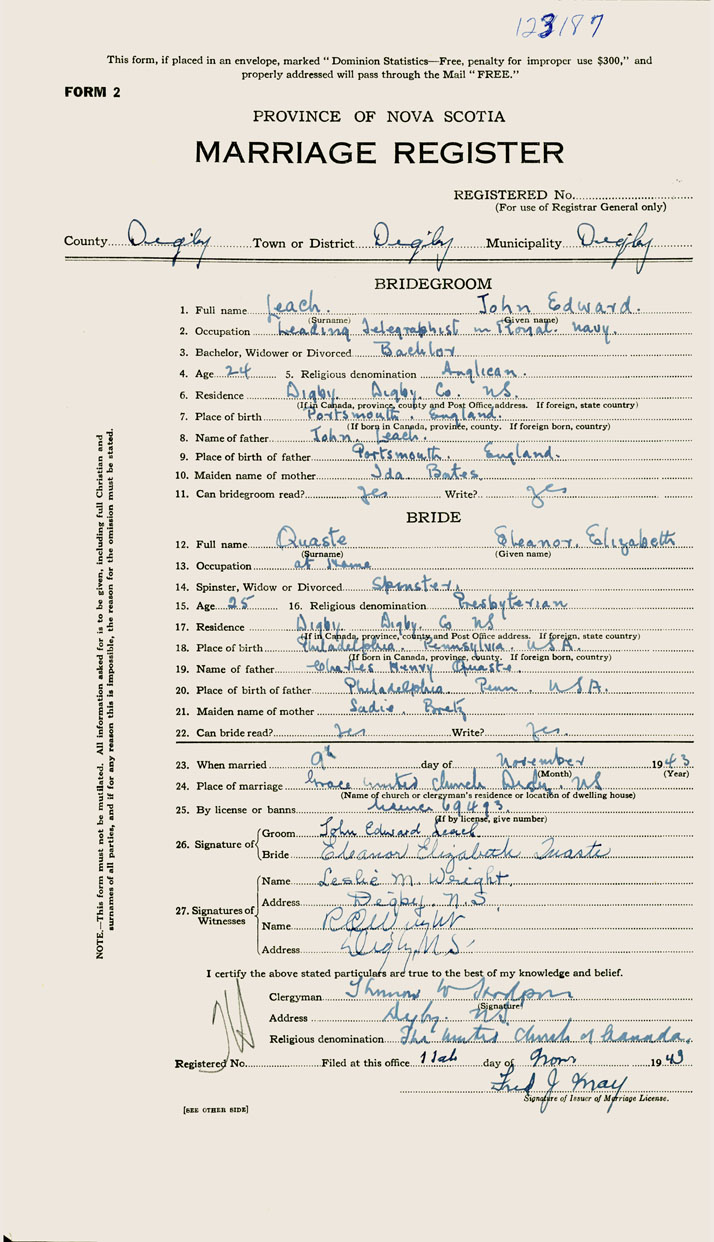 123187
This form, if placed in an envelope, marked "Dominion Statistics—Free, penalty for improper use $300," and
properly addressed will pass through the Mail "FREE."
FORM 2
PROVINCE OF NOVA SCOTIA
MARRIAGE REGISTER
REGISTERED No.
(For use of Registrar General only)
County Digby Town or District Digby Municipality Digby
BRIDEGROOM
1. Full name Leach. John Edward.
(Surname) (Given name)
2. Occupation Leading Telegraphist in Royal navy.
3. Bachelor, Widower or Divorced Bachlor
4. Age 24 5. Religious denomination Anglican.
6. Residence Digby. Digby. Co. N.S.
(If in Canada, province, county and Post Office address. If foreign, state country)
7. Place of birth Portsmouth. England.
(If born in Canada, province, county. If foreign born, country)
8. Name of father John. Leach.
9. Place of birth of father Portsmouth. England.
10. Maiden name of mother Ida Bates.
11. Can bridegroom read? yes Write? yes
BRIDE
12. Full name Quaste Eleanor. Elizabeth
(Surname) (Given name)
13. Occupation at home
14. Spinster, Widow or Divorced Spinster.
15. Age 25 16. Religious denomination Presbyterian
17. Residence Digby. Digby. Co NS
(If in Canada, province, county and Post Office address. If foreign, state country)
18. Place of birth Philadelphia. Pennsylvia. U.S.A.
(If born in Canada, province, county. If foreign born, country)
19. Name of father Charles Henry Quaste.
20. Place of birth of father Philadelphia. Penn. U.S.A.
21. Maiden name of mother Sadie. Bretz
22. Can bride read? yes Write? yes.
23. When married 9th day of November 1943
(Month) (Year)
24. Place of marriage Grace united church Digby. NS
(Name of church or clergyman's residence or location of dwelling house)
25. By license or banns license 69493.
(If by license, give number)
26. Signature of
Groom John Edward Leach
Bride Eleanor Elizabeth Quaste
27. Signatures of Witnesses
Name Leslie M. Wright,
Address Digby. N.S.
Name Wright
Address Digby, N.S.
I certify the above stated particulars are true to the best of my knowledge and belief.
Clergyman W
(Signature)
Address Digby. N.S.
Religious denomination The United Church of Canada.
Registered No. Filed at this office 11th day of Nov. 1943
Fred J. May
Signature of Issuer of Marriage License.
[SEE OTHER SIDE]
NOTE.—This form must not be mutilated. All information asked for is to be given, including full Christian and
surnames of all parties, and if for any reason this is impossible, the reason for the omission must be stated.